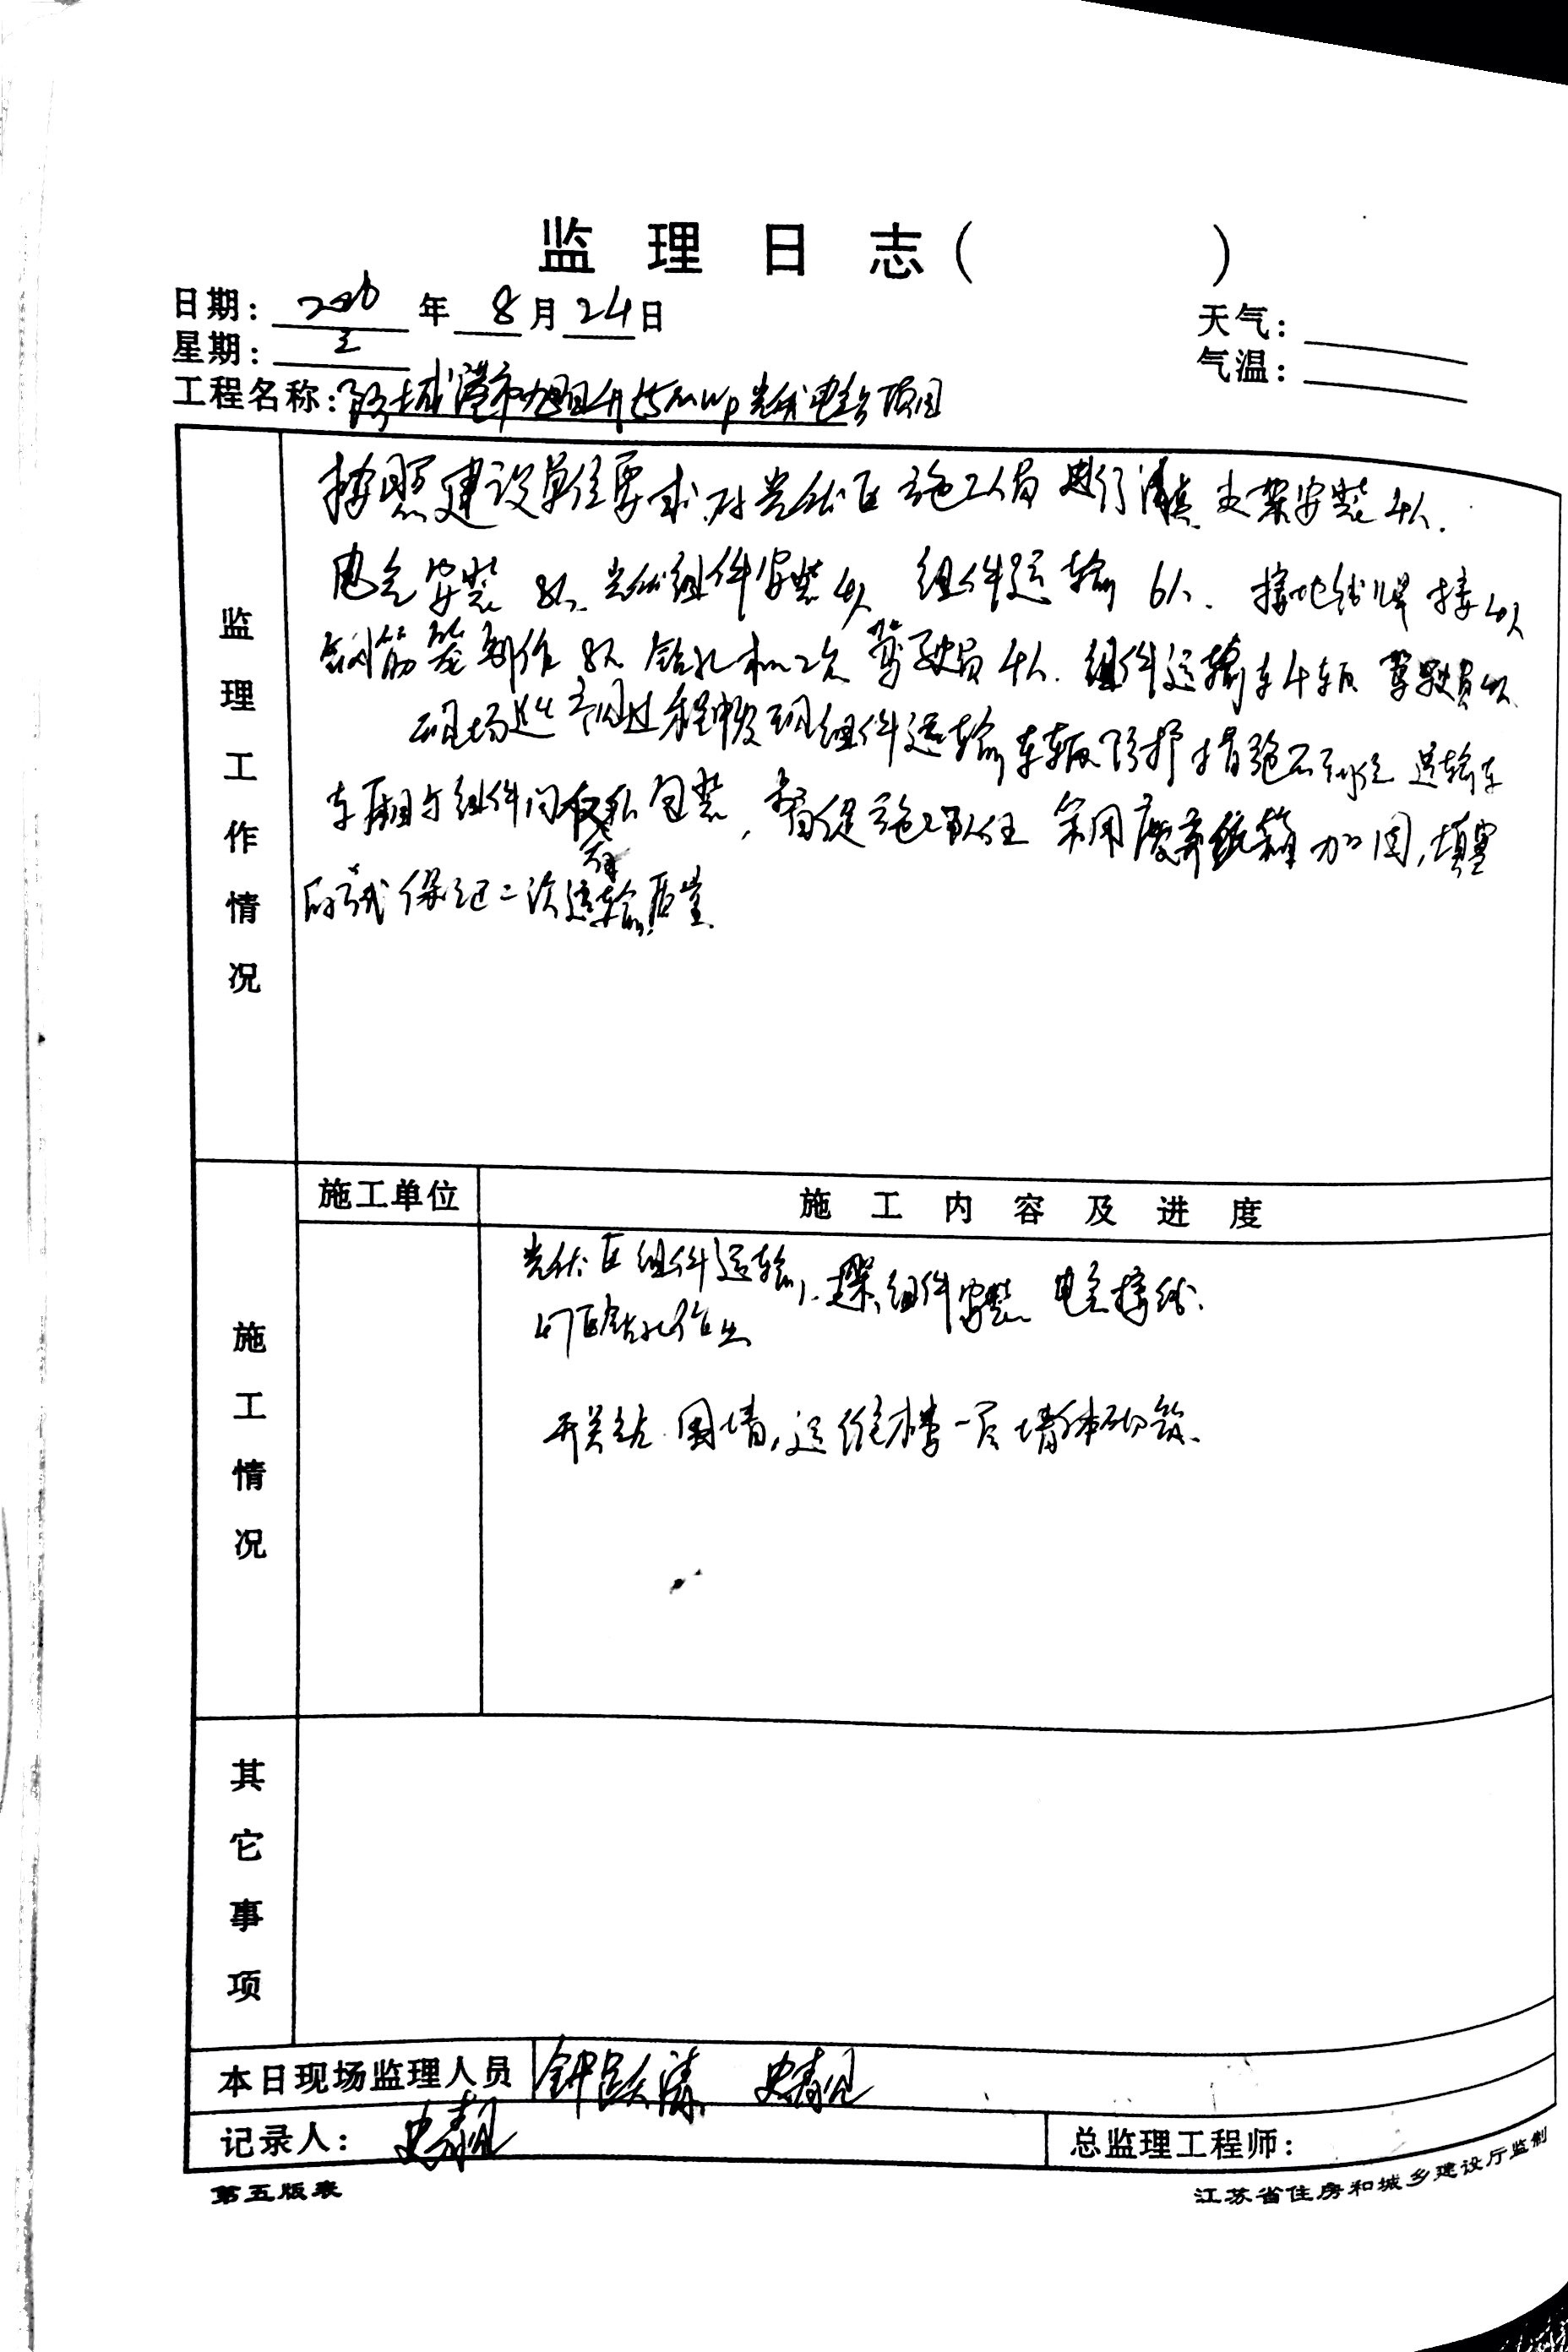 监理日志( )
日期: 2016 年 8 月 24 日
天气:
星期: 三
气温:
工程名称: 防城港市旭日升 光伏电站项目
监理工作情况
按照建设单位要求,对光伏区施工人员进行清点,支架安装4人.
电气安装8人,光伏组件安装4人,组件运输6人.接地线焊接4人
钢筋笼制作8人 钻孔机2台 驾驶员4人.组件运输车4辆 驾驶员4人
现场 过程中发现组件运输车辆防护措施不到位 运输车
车厢与组件间 包装,督促施工单位 采用废弃纸箱加固,填塞
保证二次运输质量.
施工单位
施工内容及进度
施工情况
光伏区组件运输, 组件安装 电气接线.
钻孔作业
开关站 围墙,运维楼一层墙体砌筑.
其它事项
本日现场监理人员 钟跃清 史春
记录人: 史春
总监理工程师:
第五版表
江苏省住房和城乡建设厅监制